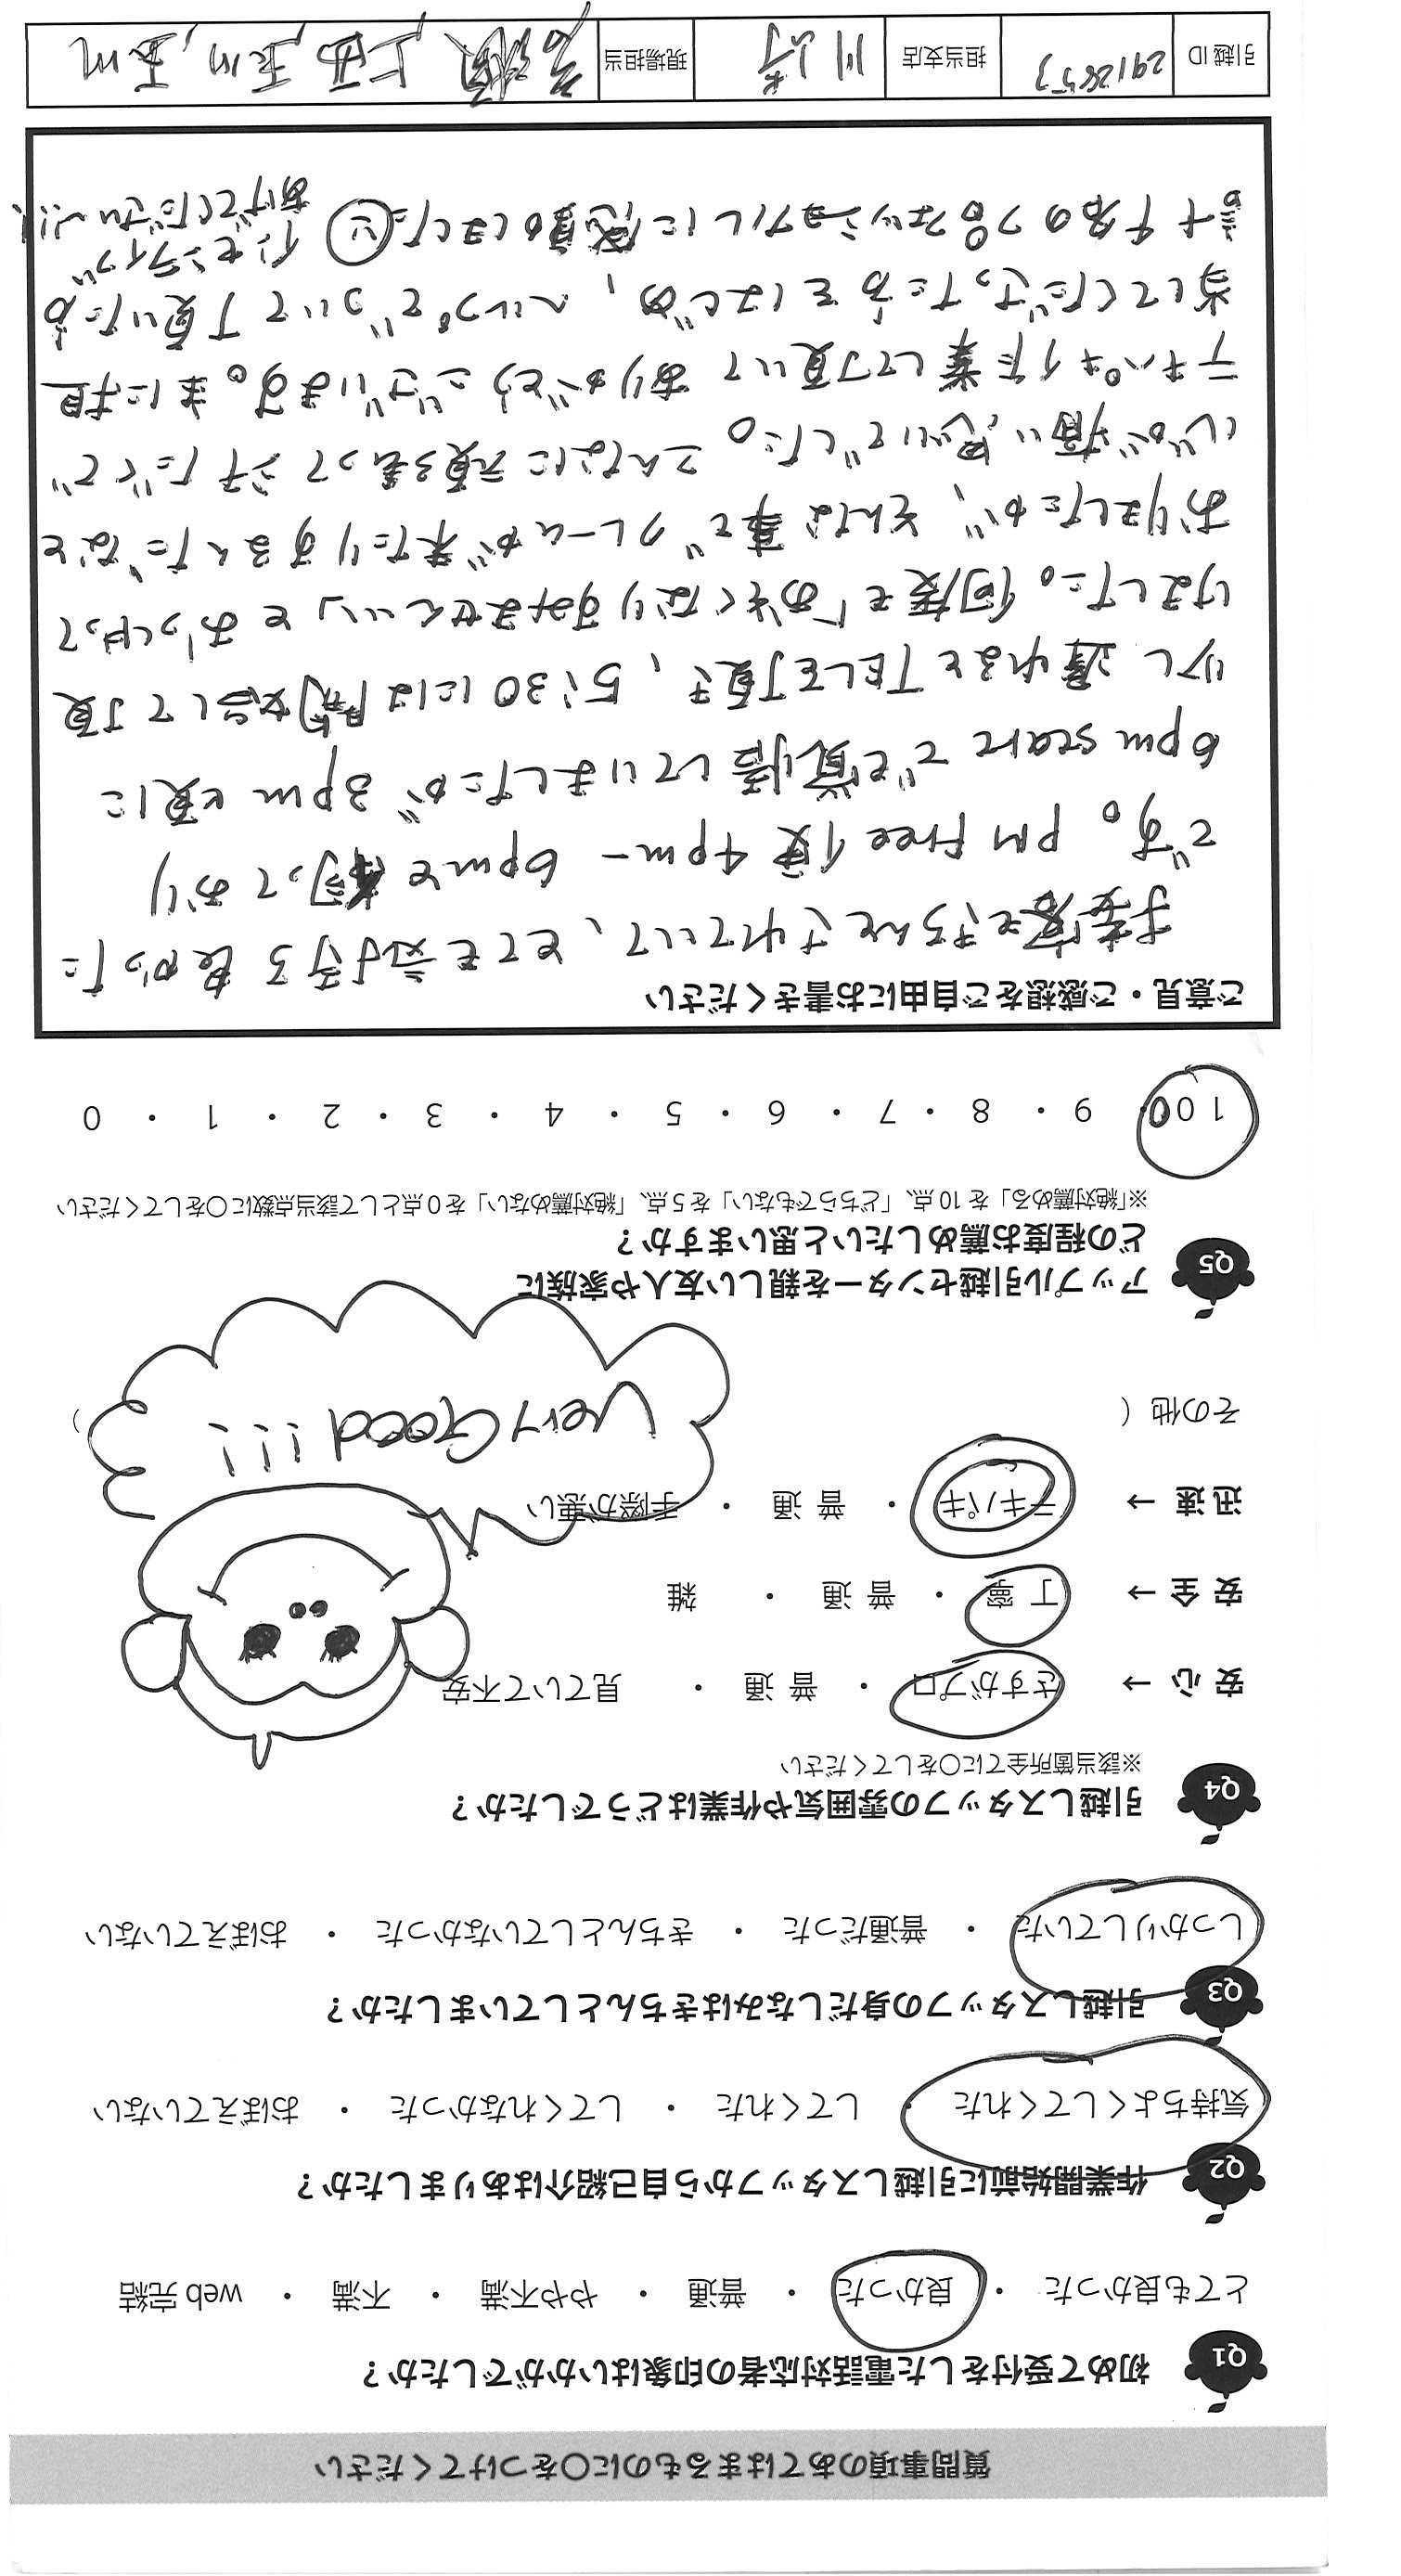 質問事項のあてはまるものに〇をつけてください
Q1 初めて受付をした電話対応者の印象はいかがでしたか？
とても良かった ・ 良かった ・ 普通 ・ やや不満 ・ 不満 ・ web完結
Q2 作業開始前に引越しスタッフから自己紹介はありましたか？
気持ちよくしてくれた ・ してくれた ・ してくれなかった ・ おぼえていない
Q3 引越しスタッフの身だしなみはきちんとしていましたか？
しっかりしていた ・ 普通だった ・ きちんとしていなかった ・ おぼえていない
Q4 引越しスタッフの雰囲気や作業はどうでしたか？
※該当箇所全てに〇をしてください
安心 → さすがプロ ・ 普通 ・ 見ていて不安
安全 → 丁寧 ・ 普通 ・ 雑
迅速 → テキパキ ・ 普通 ・ 手際が悪い
その他（ Very Good!!! ）
Q5 アップル引越センターを親しい友人や家族に
どの程度お薦めしたいと思いますか？
※「絶対薦める」を10点、「どちらでもない」を5点、「絶対薦めない」を0点として該当点数に〇をしてください
100 ・ 9 ・ 8 ・ 7 ・ 6 ・ 5 ・ 4 ・ 3 ・ 2 ・ 1 ・ 0
ご意見・ご感想をご自由にお書きください
きちんとされていて、とても気持ち良かった
です。PM Free 便 4pm-6pmと伺っており
6pm startでも覚悟していましたが 3pm頃に
少し遅れるとTELを頂き、5:30には開始して頂
けました。何度も「おそくなりすみません…」とおっしゃって
おりましたが、そんな事でクレームが来たりするんだなと
心が痛い思いでした。こんなに頑張って汗だくで
テキパキ作業して頂いてありがとうございます。主に担
当してくださった方をはじめ、ヘルプでついて頂いた方
計4名のプロフェッショナルに感動しました インセンティブ
あげてください!!!
引越ID 担当支店 川崎 現場担当 上西, 玉川, 玉川